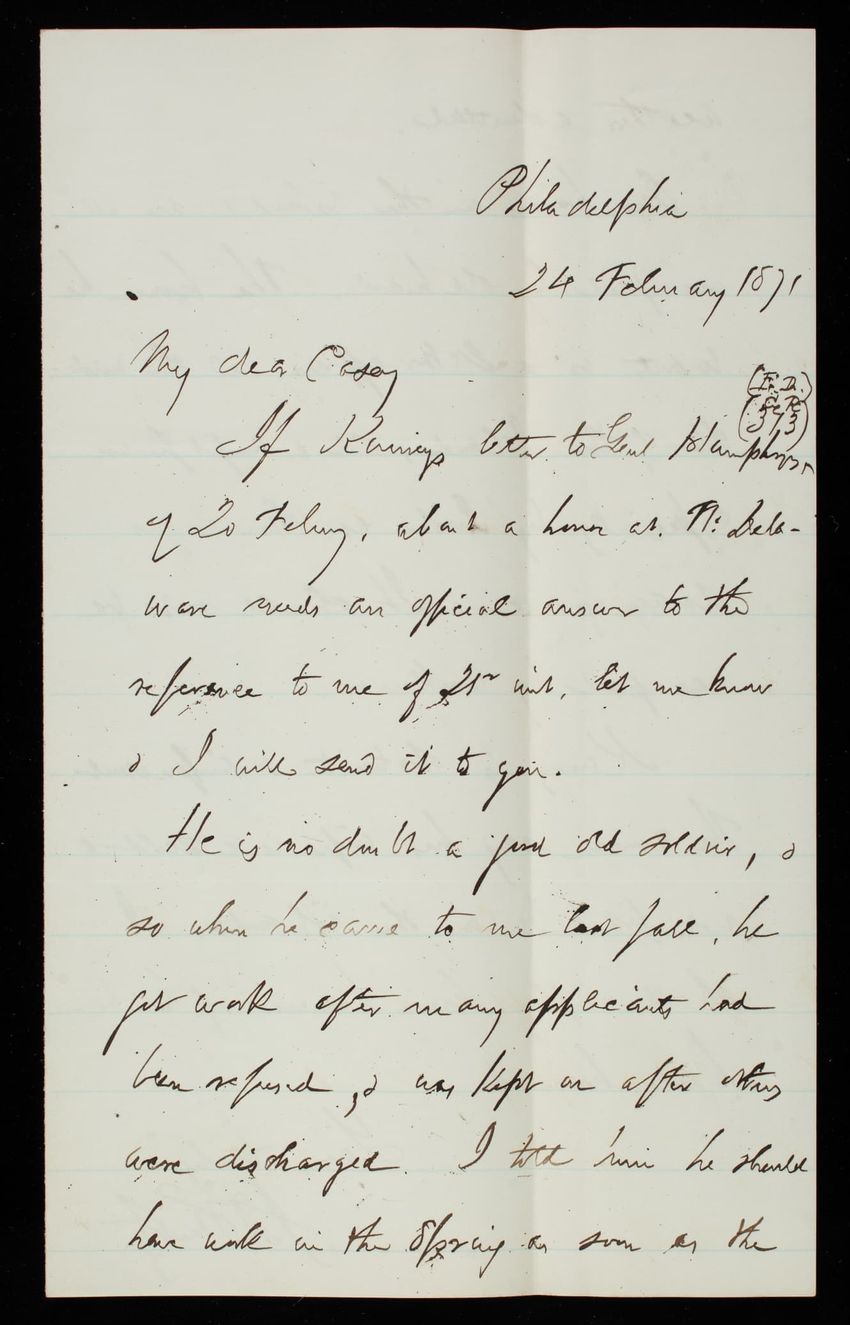 Philadelphia
24 February 1871
My dear Casey
If letter to Genl Humphreys
of 20 Feby, about a house at Ft: Dela-
ware needs an official answer to the
reference to me of 21st inst, let me know
& I will send it to you.
He is no doubt a good old soldier, &
so when he came to me last fall, he
got work after many applicants had
been refused, & was kept on after others
were discharged. I told him he should
have work in the Spring as soon as the